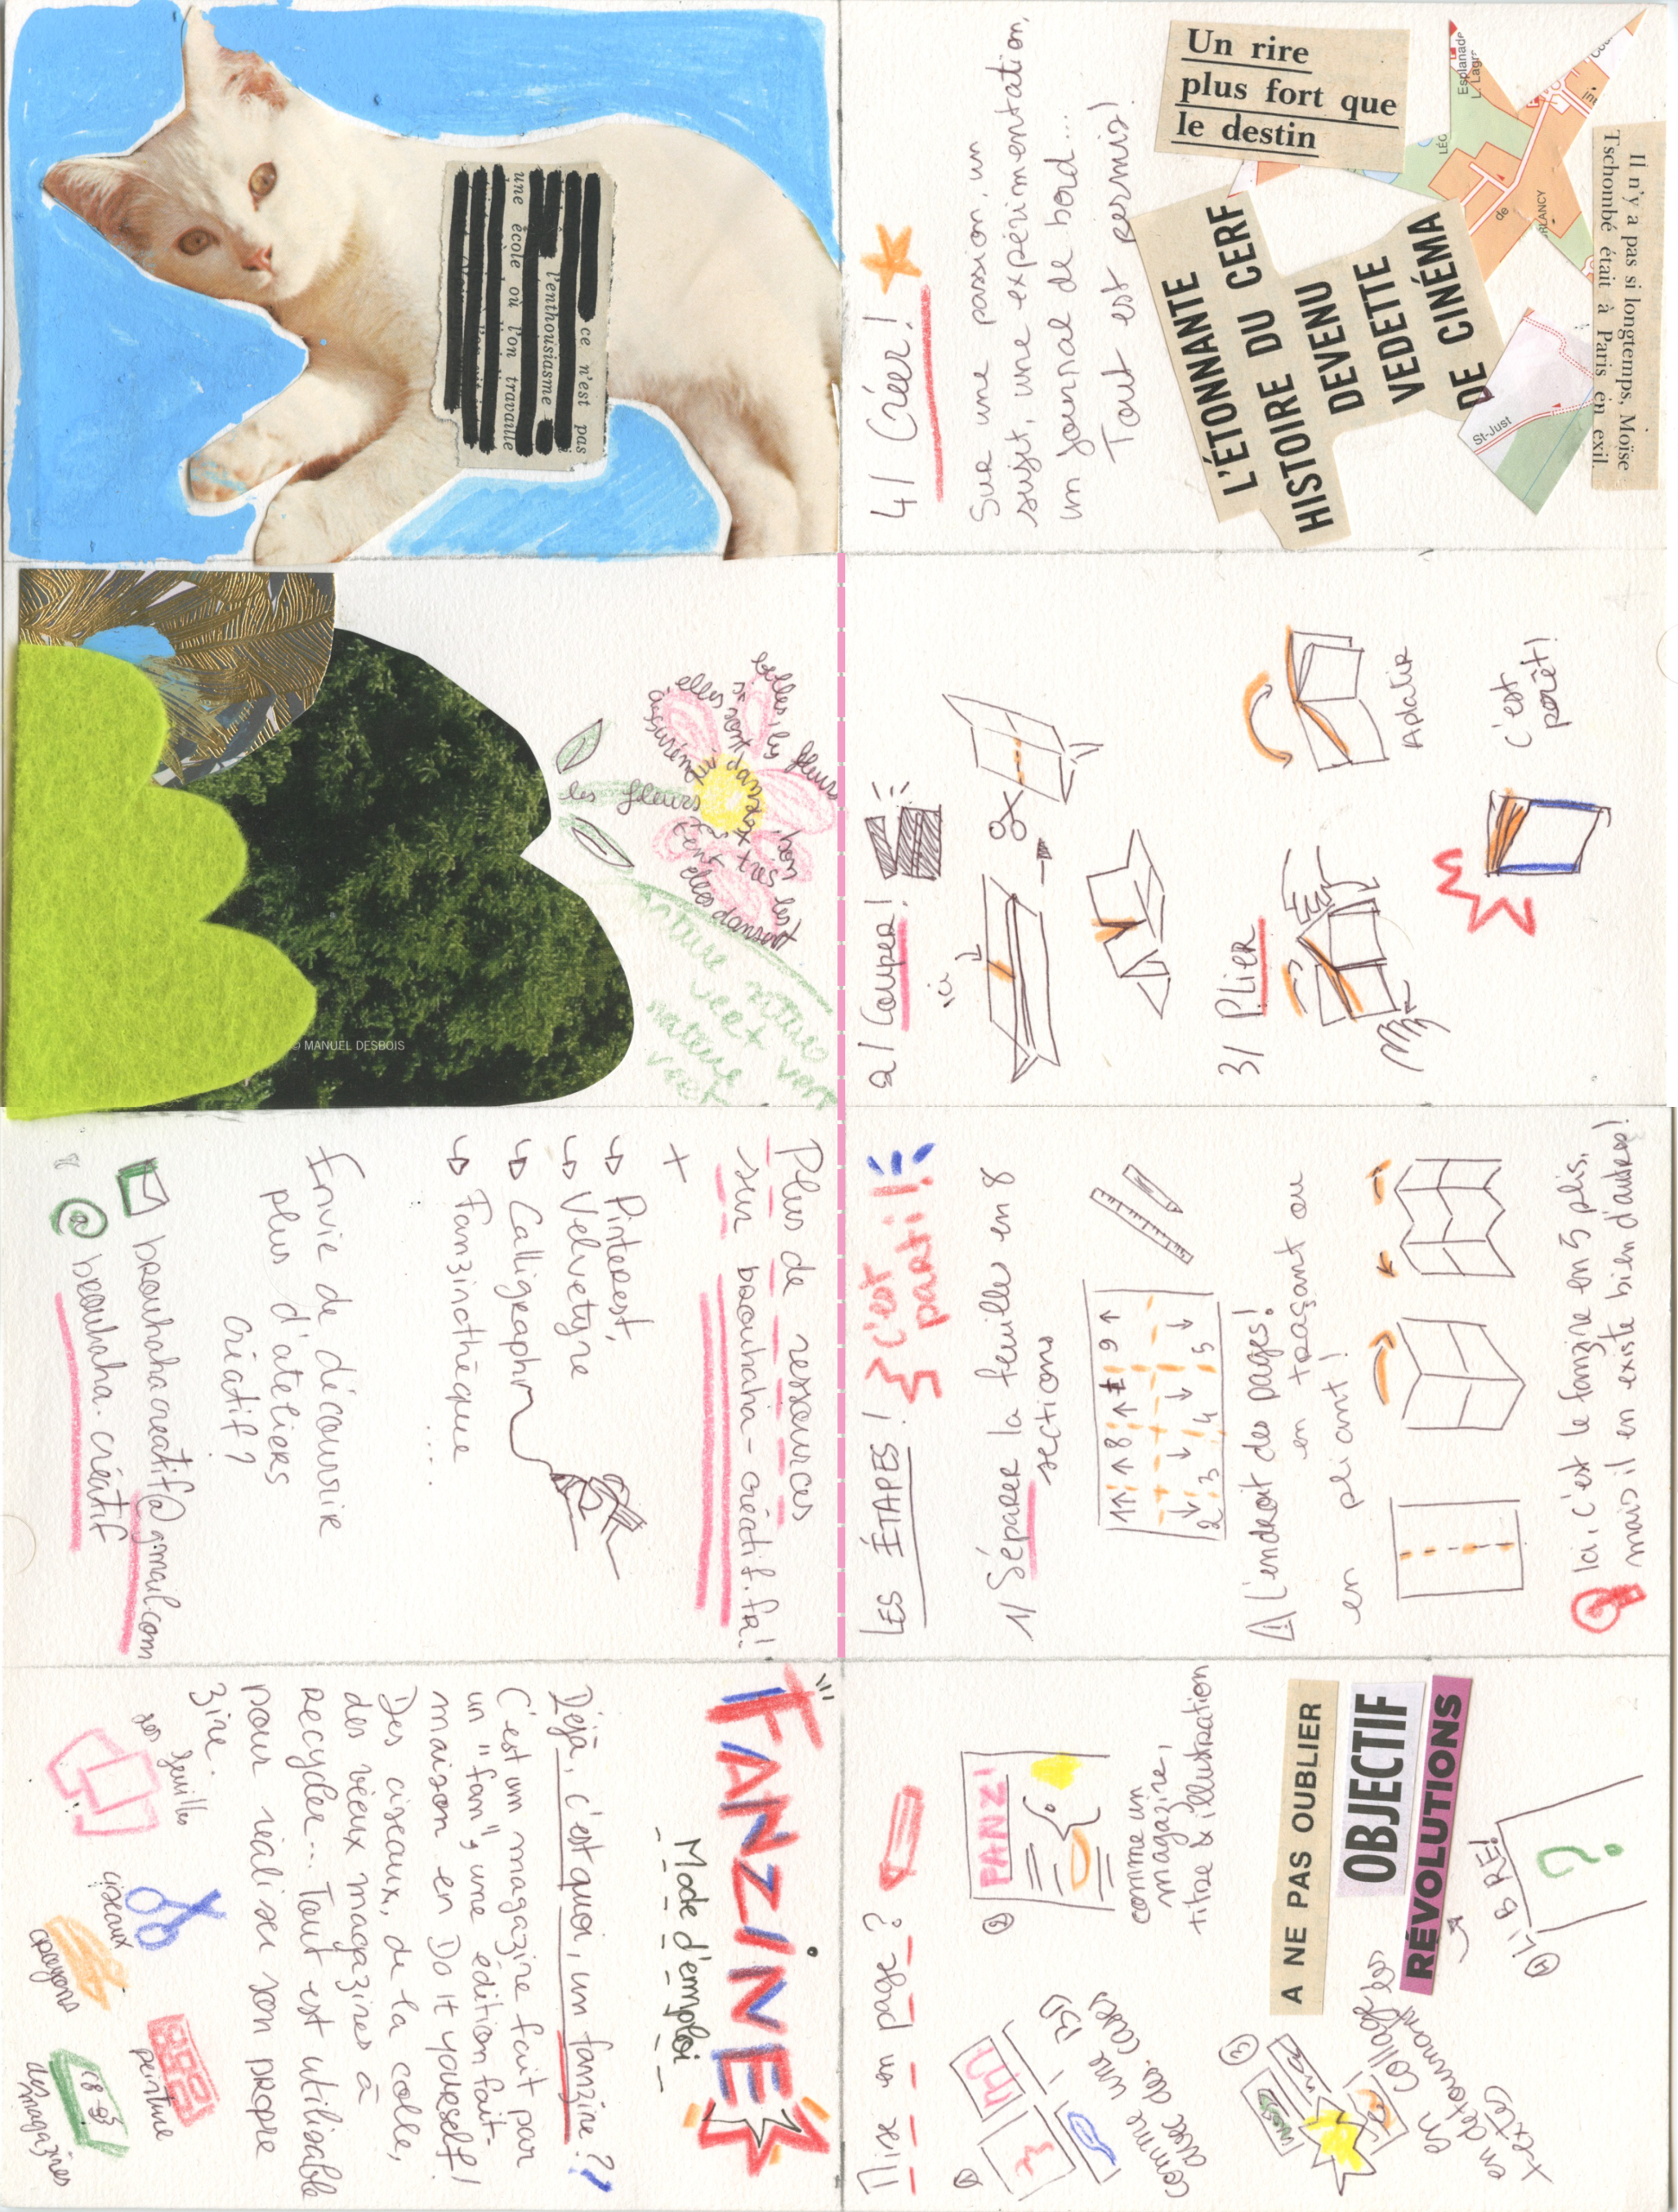 FANZINE
Mode d'emploi
Déjà, c'est quoi, un fanzine ??
C'est un magazine fait par
un "fan", une édition fait-
maison en Do it yourself!
Des ciseaux, de la colle,
des vieux magazines à
recycler... Tout est utilisable
pour réaliser son propre
zine.
des feuilles
ciseaux
crayons
peinture
des magazines
Mise en page?
1
comme une BD
avec des cases
2
FANZ!
comme un
magazine,
titre & illustration
3
en collage
en détournant les
textes
A NE PAS OUBLIER
OBJECTIF
RÉVOLUTIONS
4 LIBRE!
?
LES ÉTAPES!
C'est
parti!
1/ Séparer la feuilles en 8
sections
1↑ ↑ 8 ↑ ↑ 9 ↑
2 ↓ 3 ↓ 4 ↓ 5 ↓
⚠ L'endroit des pages!
en traçant ou
en pliant!
Ici, c'est le fanzine en 5 plis,
mais il en existe bien d'autres!
2/ Couper!
ici
3/ Plier
Aplatir
C'est
prêt!
4/ Créer!
Sur une passion, un
sujet, une expérimentation,
un journal de bord...
Tout est permis!
Un rire
plus fort que
le destin
L'ÉTONNANTE
HISTOIRE DU CERF
DEVENU
VEDETTE
DE CINÉMA
Il n'y a pas si longtemps, Moïse
Tschombé était à Paris en exil.
Esplanade
St-Just
de
ce n'est pas
l'enthousiasme
une école où l'on travaille
© MANUEL DESBOIS
les fleurs
belles, les fleurs
elles dansent
nature
vert
nature
vert
Plus de ressources
sur brouhaha-créatif.fr!
+
↳ Pinterest,
↳ Velvetyne
↳ Calligraphr
↳ Fanzinothèque
....
Envie de découvrir
plus d'ateliers
créatif?
brouhahacreatif@gmail.com
@ brouhaha.créatif